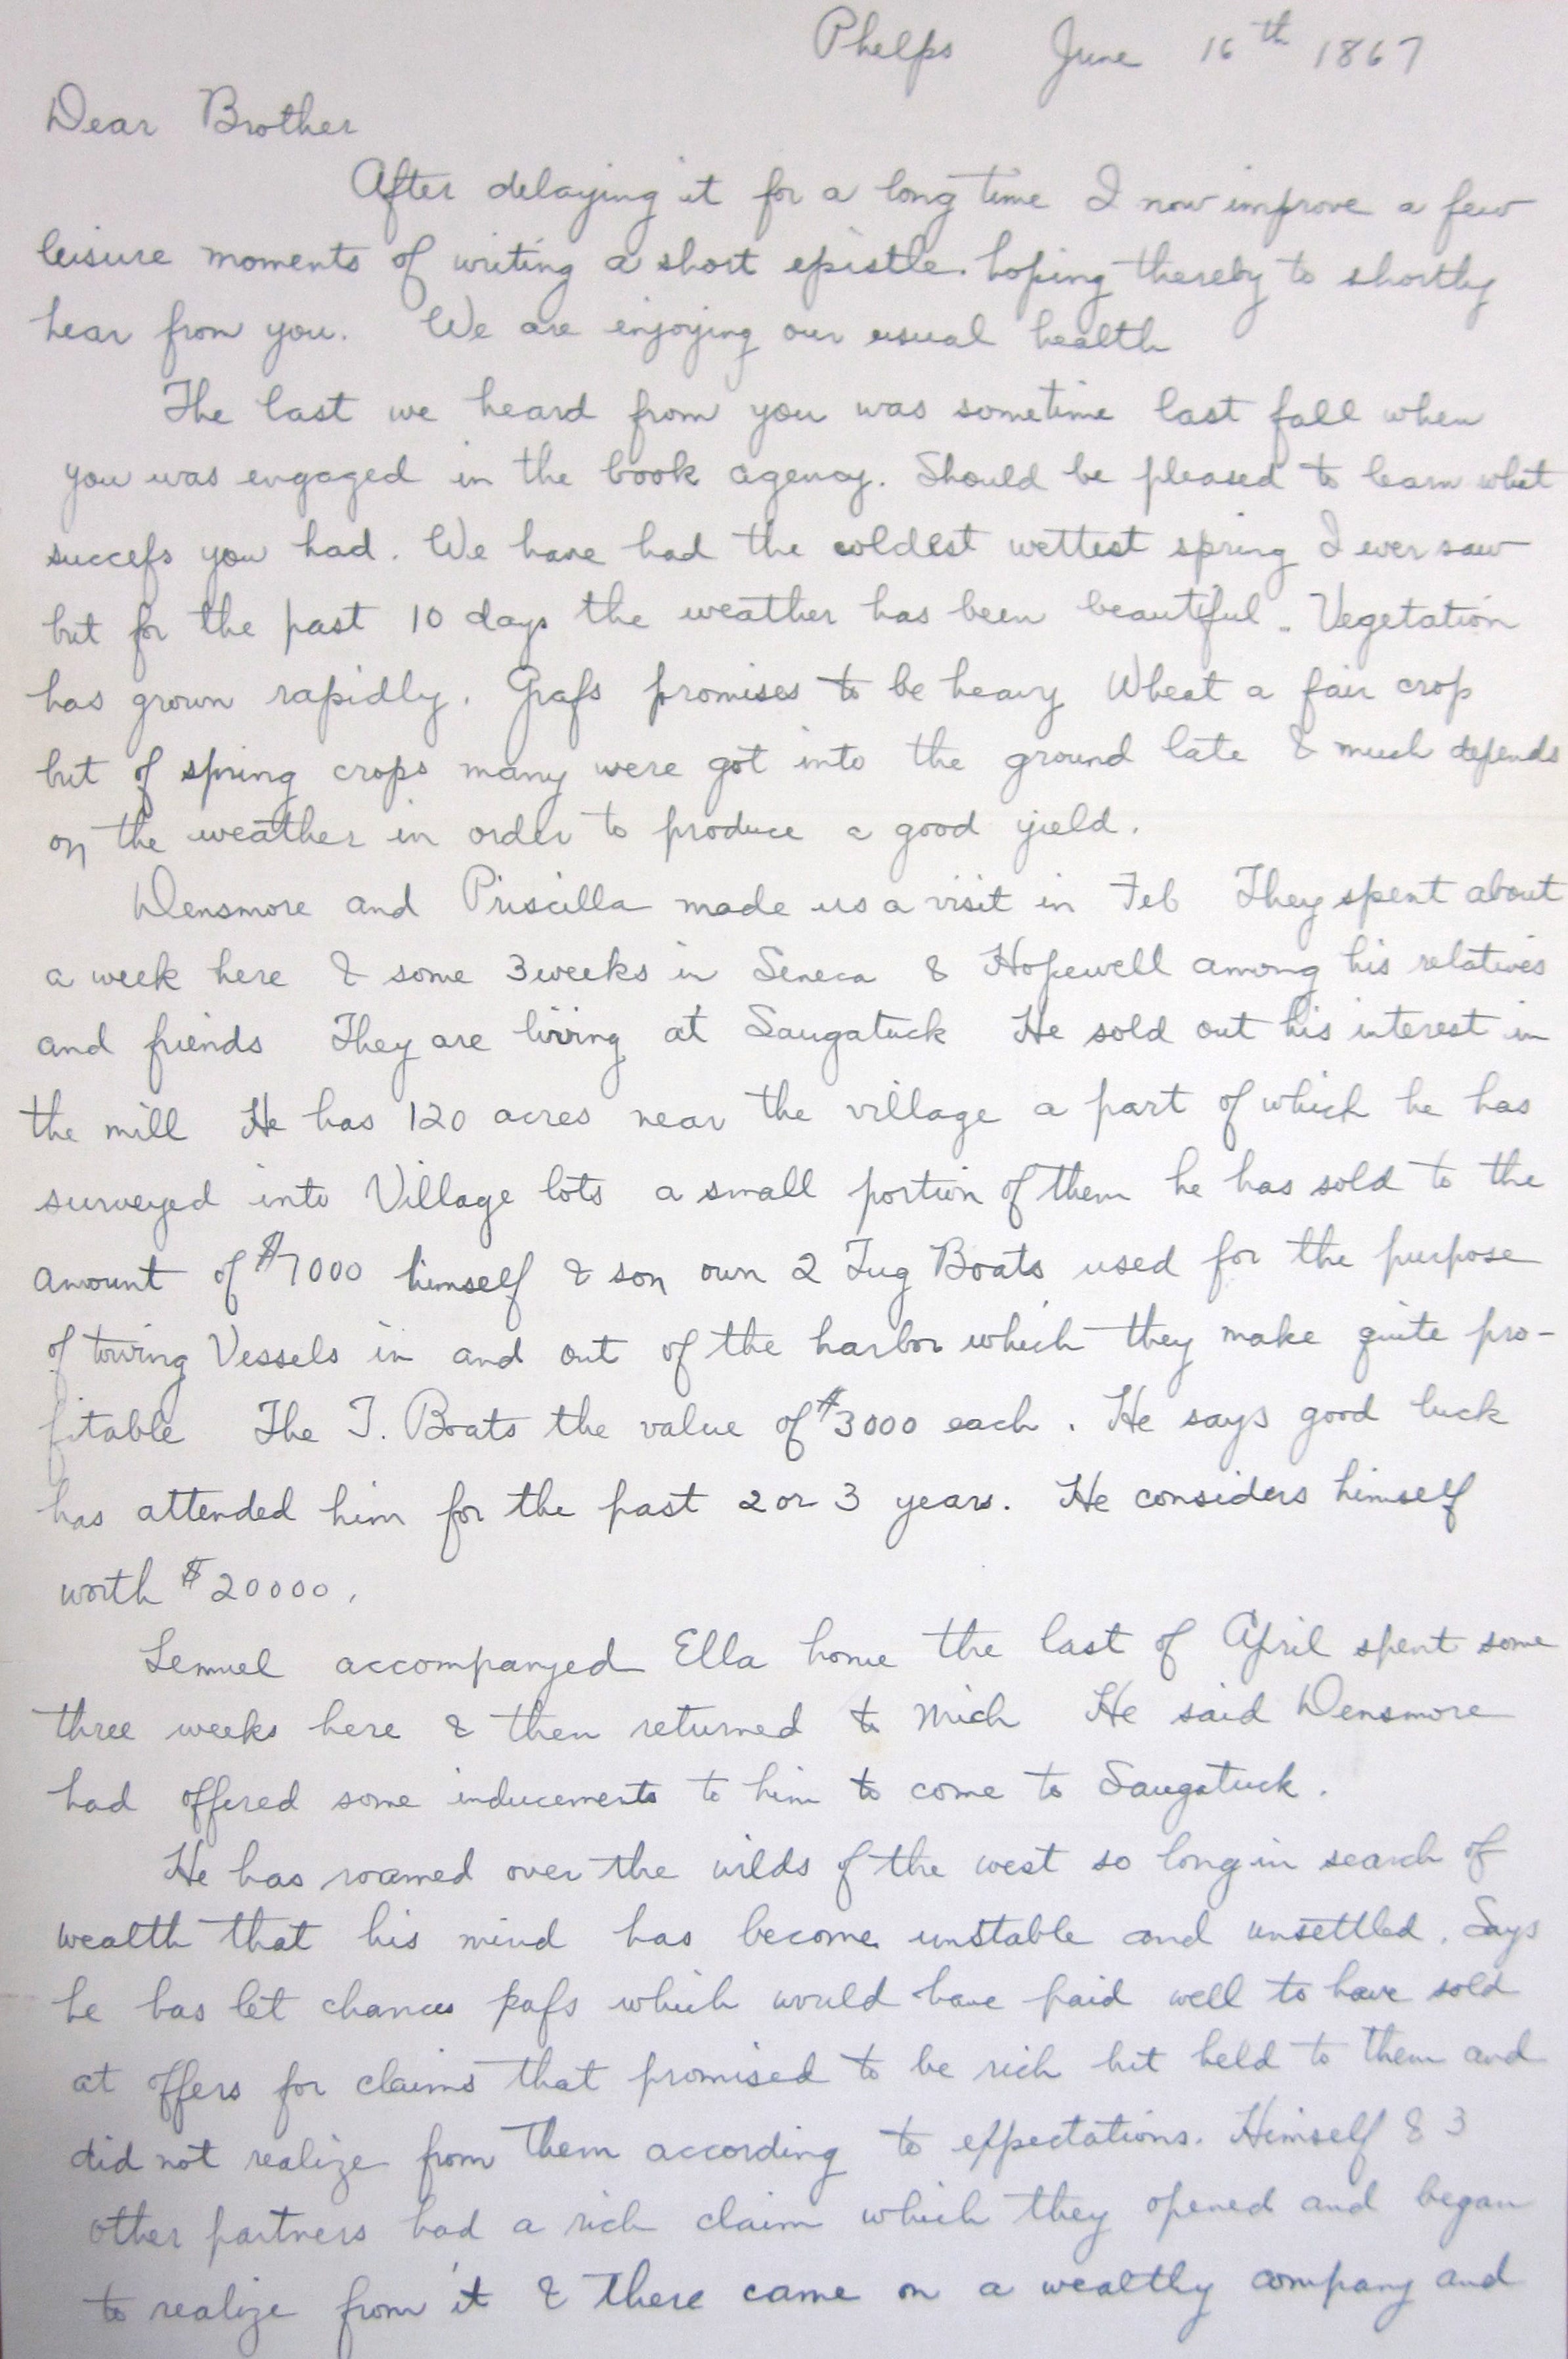 Phelps June 16th 1867
Dear Brother
After delaying it for a long time I now improve a few
leisure moments of writing a short epistle. hoping thereby to shortly
hear from you. We are enjoying our usual health
The last we heard from you was sometime last fall when
you was engaged in the book agency. Should be pleased to learn what
succeſs you had. We have had the coldest wettest spring I ever saw
but for the past 10 days the weather has been beautiful. Vegetation
has grown rapidly. Graſs promises to be heavy Wheat a fair crop
but of spring crops many were got into the ground late & much depends
on the weather in order to produce a good yield.
Densmore and Priscilla made us a visit in Feb They spent about
a week here & some 3 weeks in Seneca & Hopewell among his relatives
and friends They are living at Saugatuck He sold out his interest in
the mill He has 120 acres near the village a part of which he has
surveyed into Village lots a small portion of them he has sold to the
amount of $7000 himself & son own 2 Tug Boats used for the purpose
of towing Vessels in and out of the harbor which they make quite pro-
fitable The T. Boats the value of $3000 each. He says good luck
has attended him for the past 2 or 3 years. He considers himself
worth $20000.
Lemuel accompanyed Ella home the last of April spent some
three weeks here & then returned to Mich He said Densmore
had offered some inducements to him to come to Saugatuck.
He has roamed over the wilds of the west so long in search of
wealth that his mind has become unstable and unsettled. Says
he has let chances paſs which would have paid well to have sold
at offers for claims that promised to be rich but held to them and
did not realize from them according to expectations. Himself & 3
other partners had a rich claim which they opened and began
to realize from it & there came on a wealthy company and